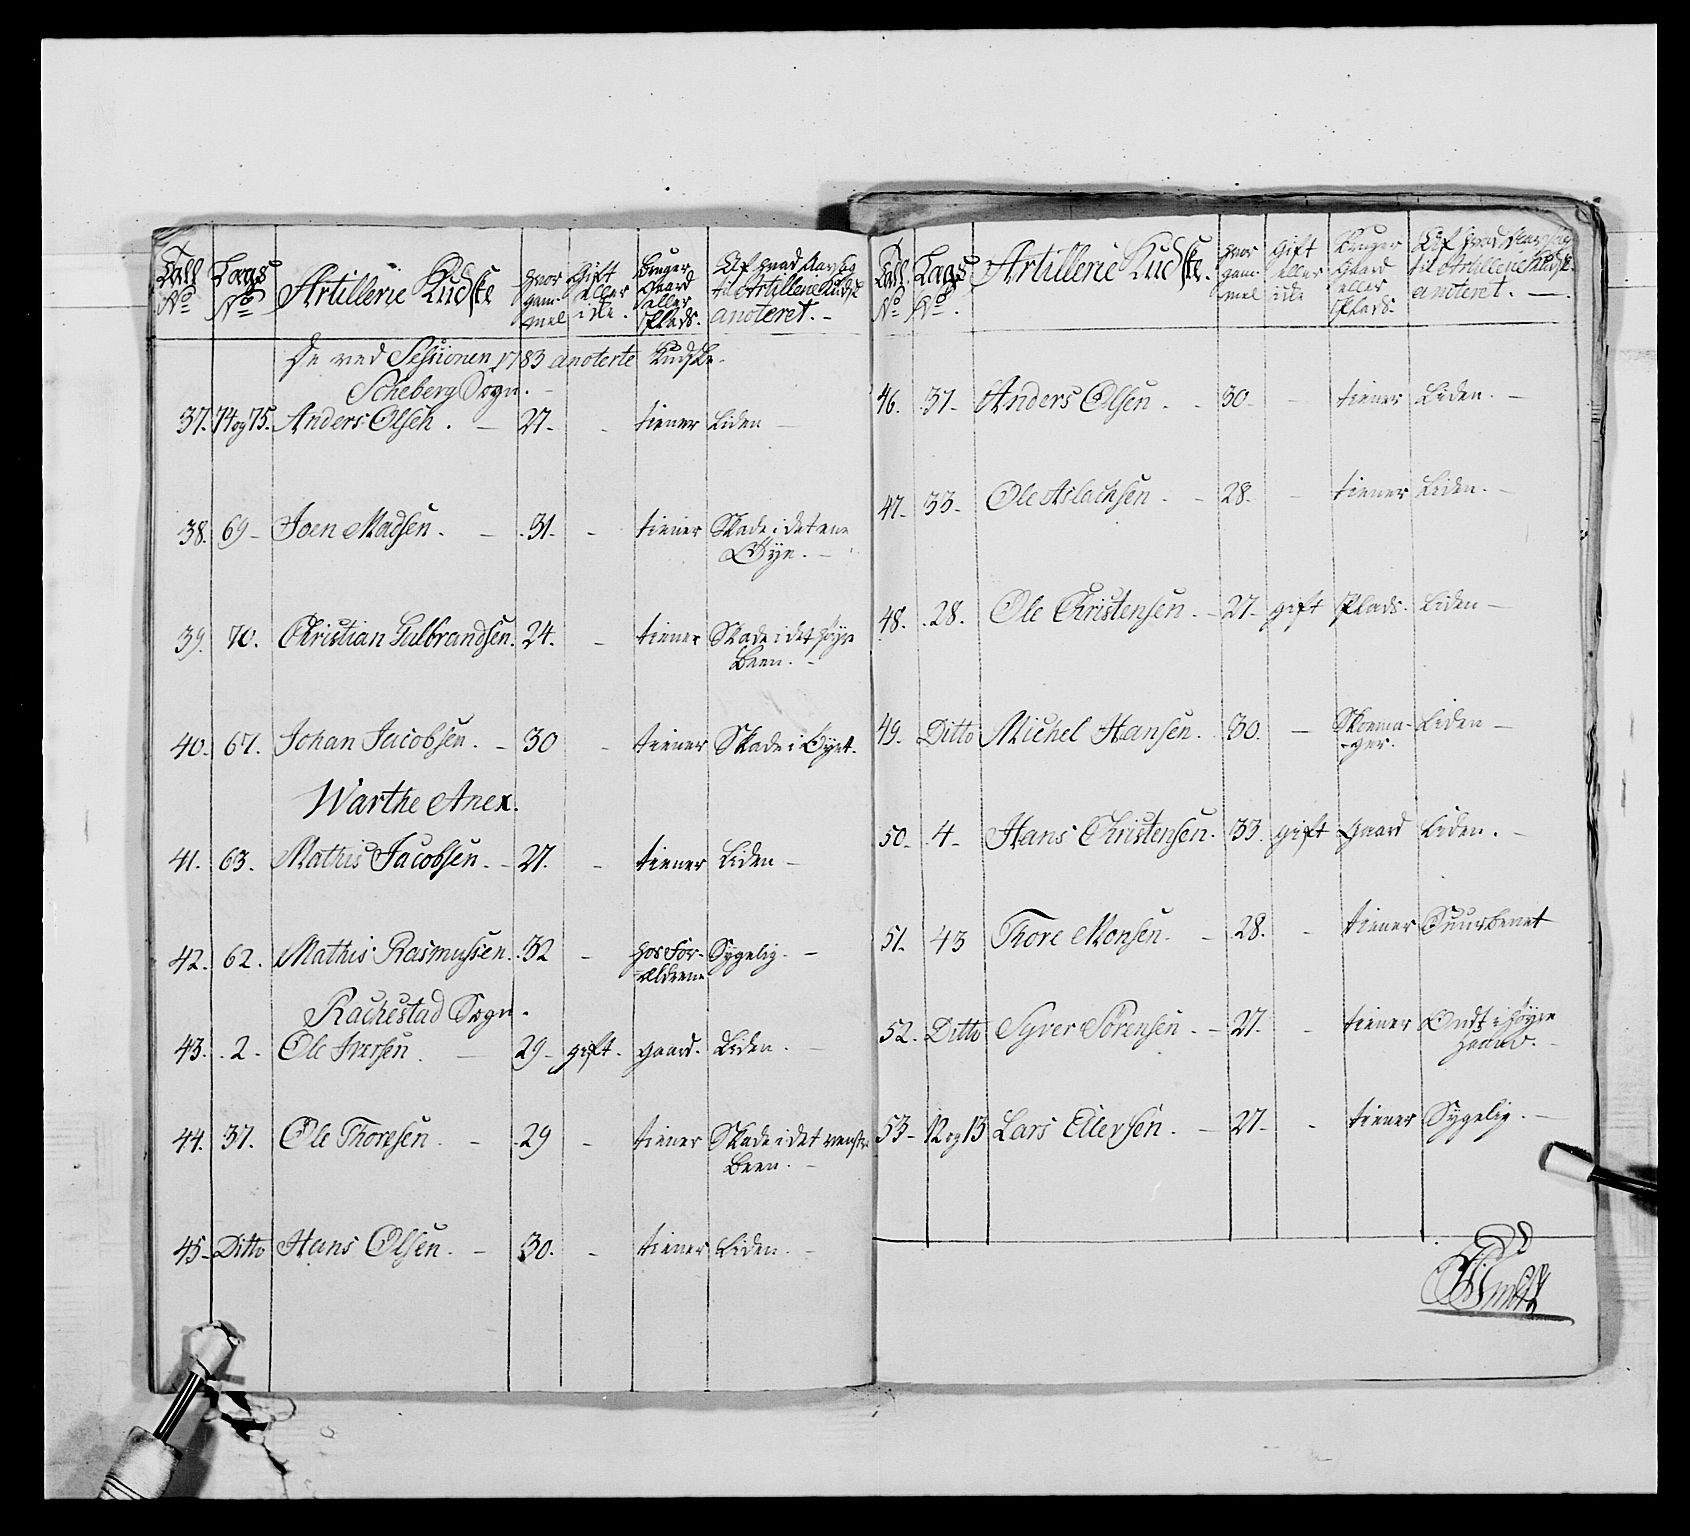 Tall No
Laegs No
Artillerie Kudske
hvor gam- mel
Gift eller ide.
Bruger Gaard eller Plads.
Af hvad Aarsag til Artillerie Kudsk anoteret. -
De ved Sessionen 1783 anoterte Kudske.
Scheberg Sogn. -
37. 74 og 75. Anders Olsen. - 27. - tiener Liden -
38. 69 - Joen Madsen. - 31. - tiener Skade i det ene
Øye. -
39. 70. Christian Gulbrandsen. 24. - tiener Skade i det høyre
Been. -
40. 67. Johan Jacobsen. - 30 - tiener Skade i Øyet.
Warthe Anex.
41. 63. Mathis Jacobsen. - 27. - tiener Liden -
42. 62. Mathis Rasmussen. 32 - hos For- Sygelig. -
ældrene
Rachestad Sogn.
43. 2. Ole Iversen. - 29 - gift. gaard. Liden. -
44. 37. Ole Thoresen. - 29 - tiener Skade i det venstre
Been. -
45 - Ditto Hans Olsen. - 30. - tiener Liden. -
Tall No
Laegs No.
Artillerie Kudske.
hvor gam- mel
Gift eller ide
Bruger Gaard eller Plads.
Af hvad Aarsag til Artillerie Kudsk. anoteret. -
46. 37 - Anders Olsen. - 30 - - tiener Liden. -
47 - 33 - Ole Aslachsen. - 28. - tiener Liden. -
48. 28. Ole Christensen. - 27 - gift Plads. Liden -
49 - Ditto Michel Hansen. 30. - Skoema- Liden -
ger.
50 - 4 - Hans Christensen. 33. gift gaard Liden. -
51. 43 Thore Monsen. - 28. - tiener Suurbenet
52. Ditto Syver Sørensen. - 27. - tiener Ondt i høyre
Haand. -
53 - 12 og 13 Lars Ellevsen. - 27 - - tiener Sygelig. -